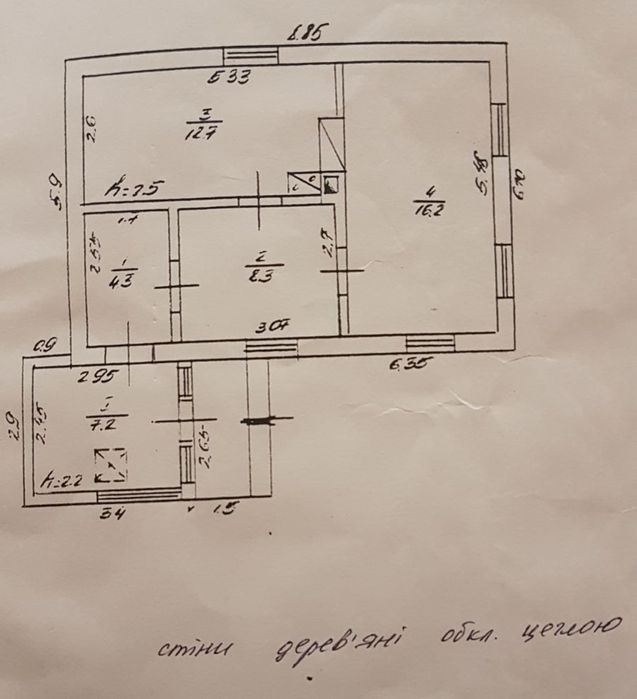 8.85
5.33
3
12.7
2.6
h=2.5
5.9
4
16.2
5.48
6.10
1.7
2.55
1
4.3
2
8.3
2.7
3.07
6.35
0.9
2.95
7.2
2.9
2.45
2.65
h=2.2
3.4
1.5
стіни дерев'яні обкл. цеглою